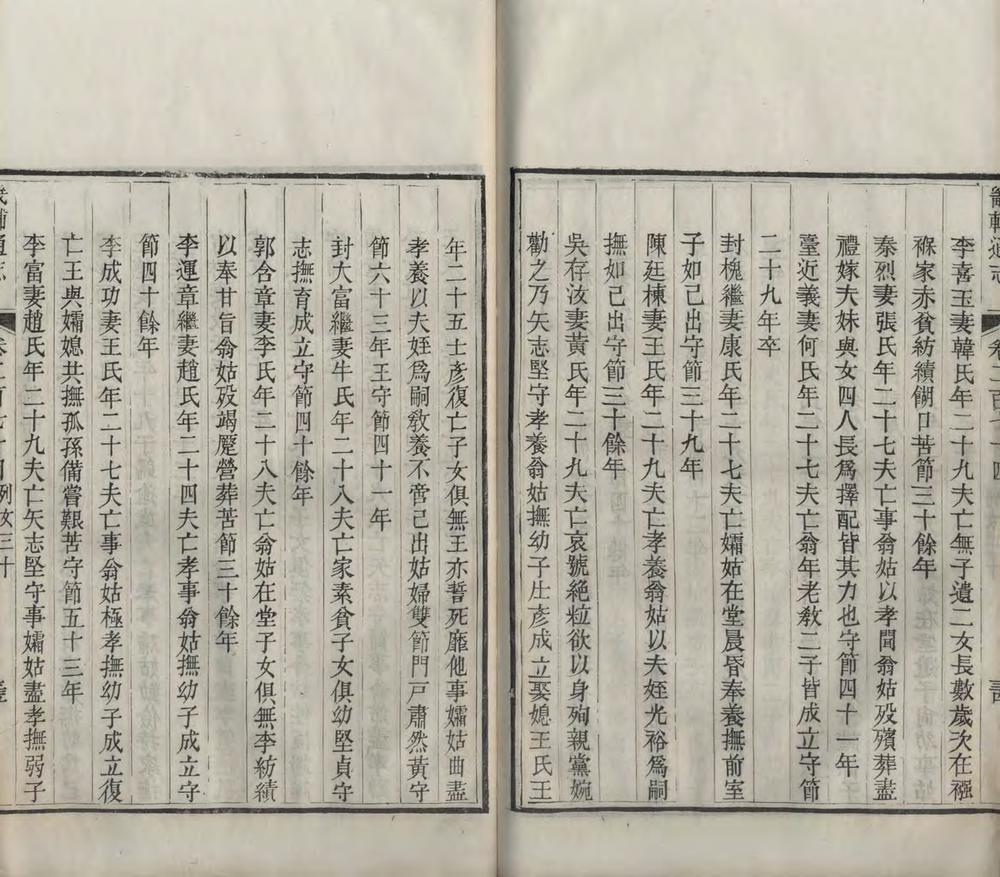 畿輔通志 卷二百七十四
李喜玉妻韓氏年二十九夫亡無子遺二女長數歲次在襁
褓家赤貧紡績餬口苦節三十餘年
秦烈妻張氏年二十七夫亡事翁姑以孝聞翁姑歿殯葬盡
禮嫁夫妹與女四人長爲擇配皆其力也守節四十一年
臺近義妻何氏年二十七夫亡翁年老教二子皆成立守節
二十九年卒
封槐繼妻康氏年二十七夫亡孀姑在堂晨昏奉養撫前室
子如己出守節三十九年
陳廷棟妻王氏年二十九夫亡孝養翁姑以夫姪光裕爲嗣
撫如己出守節三十餘年
吳存汝妻黃氏年二十九夫亡哀號絶粒欲以身殉親黨婉
勸之乃矢志堅守孝養翁姑撫幼子士彥成立娶媳王氏王
年二十五士彥復亡子女俱無王亦誓死靡他事孀姑曲盡
孝養以夫姪爲嗣敎養不啻己出姑婦雙節門戸肅然黃守
節六十三年王守節四十一年
封大富繼妻牛氏年二十八夫亡家素貧子女俱幼堅貞守
志撫育成立守節四十餘年
郭含章妻李氏年二十八夫亡翁姑在堂子女俱無李紡績
以奉甘旨翁姑歿竭蹷營葬苦節三十餘年
李運章繼妻趙氏年二十四夫亡孝事翁姑撫幼子成立守
節四十餘年
李成功妻王氏年二十七夫亡事翁姑極孝撫幼子成立復
亡王與孀媳共撫孤孫備嘗艱苦守節五十三年
李富妻趙氏年二十九夫亡矢志堅守事孀姑盡孝撫弱子
畿輔通志 卷二百七十四列女三十